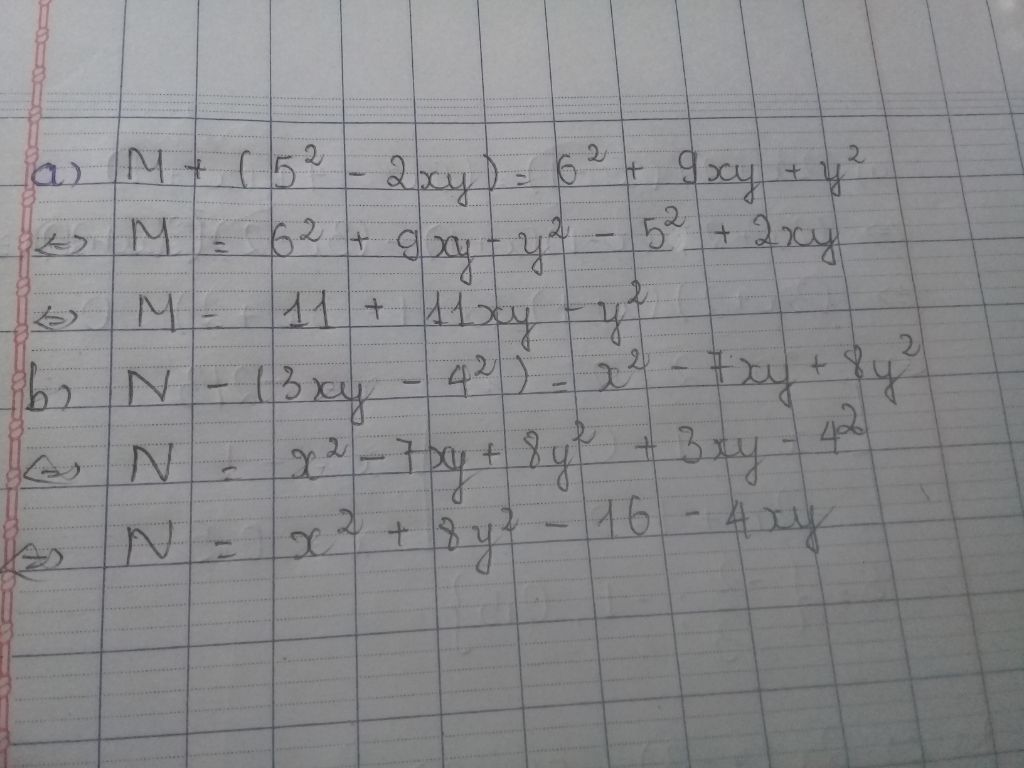 a) M + (5² - 2xy) = 6² + 9xy + y²
<=> M = 6² + 9xy - y² - 5² + 2xy
<=> M = 11 + 11xy - y²
b) N - (3xy - 4²) = x² - 7xy + 8y²
<=> N = x² - 7xy + 8y² + 3xy - 4²
<=> N = x² + 8y² - 16 - 4xy